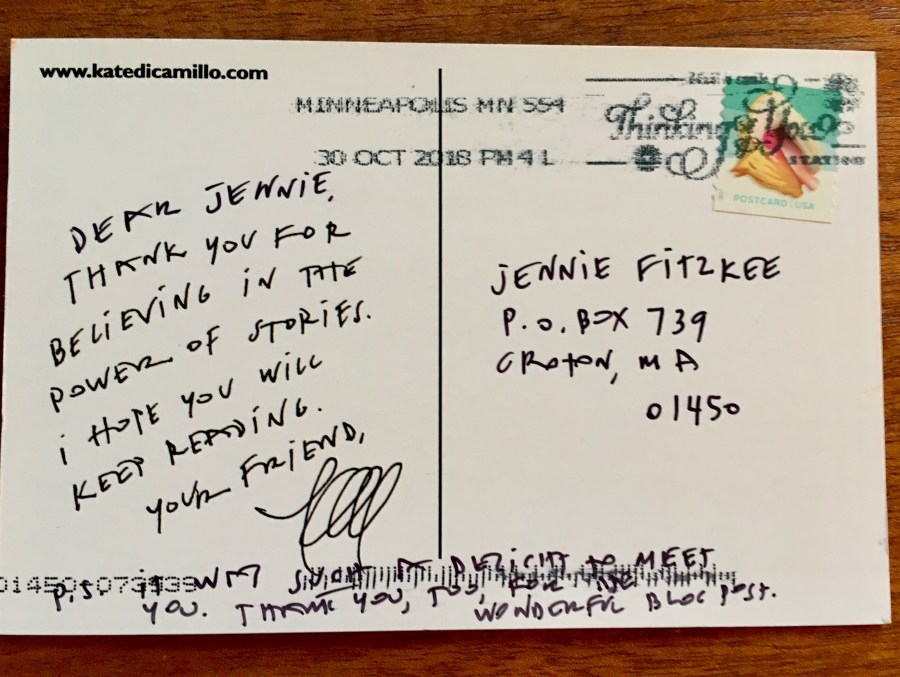 www.katedicamillo.com
MINNEAPOLIS MN 554
30 OCT 2018 PM 4 L
Thinking of You
STATION
POSTCARD | USA
DEAR JENNIE,
THANK YOU FOR
BELIEVING IN THE
POWER OF STORIES.
i HOPE YOU WILL
KEEP READING.
YOUR FRIEND,
JENNIE FITZKEE
P.O. BOX 739
GROTON, MA
01450
P.S. IT WAS SUCH A DELIGHT to MEET
YOU. THANK YOU, TOO, FOR THE
WONDERFUL BLOG POST.